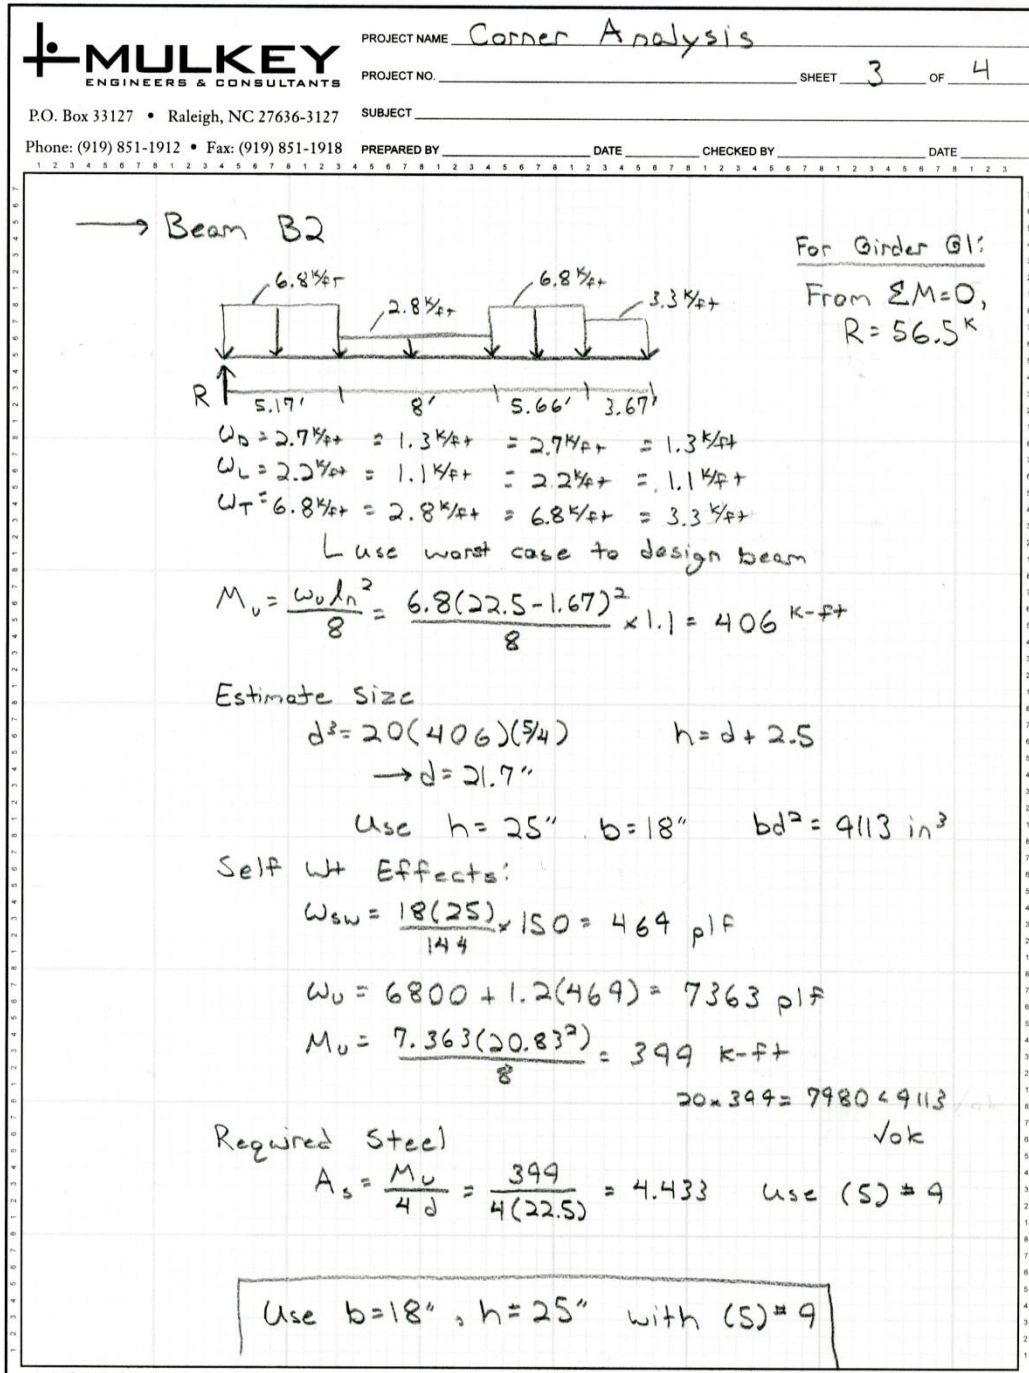 MULKEY
ENGINEERS & CONSULTANTS
P.O. Box 33127 • Raleigh, NC 27636-3127
Phone: (919) 851-1912 • Fax: (919) 851-1918
PROJECT NAME Corner Analysis
PROJECT NO. SHEET 3 OF 4
SUBJECT
PREPARED BY DATE CHECKED BY DATE
→ Beam B2
For Girder G1:
From ΣM=0,
R = 56.5ᴷ
6.8 K/FT 2.8 K/ft 6.8 K/ft 3.3 K/ft
R 5.17' 8' 5.66' 3.67'
ω_D = 2.7 K/ft = 1.3 K/ft = 2.7 K/ft = 1.3 K/ft
ω_L = 2.2 K/ft = 1.1 K/ft = 2.2 K/ft = 1.1 K/ft
ω_T = 6.8 K/ft = 2.8 K/ft = 6.8 K/ft = 3.3 K/ft
use worst case to design beam
M_u = ω_u l_n²/8 = 6.8(22.5-1.67)²/8 × 1.1 = 406 K-ft
Estimate Size
d³ = 20(406)(5/4) h = d + 2.5
→ d = 21.7"
Use h = 25" b = 18" bd² = 9113 in³
Self Wt Effects:
ω_sw = 18(25)/144 × 150 = 469 plf
ω_u = 6800 + 1.2(469) = 7363 plf
M_u = 7.363(20.83²)/8 = 399 K-ft
20 × 399 = 7980 < 9113
√ok
Required Steel
A_s = M_u/4d = 399/4(22.5) = 4.433 use (5) #9
Use b=18", h=25" with (5) #9